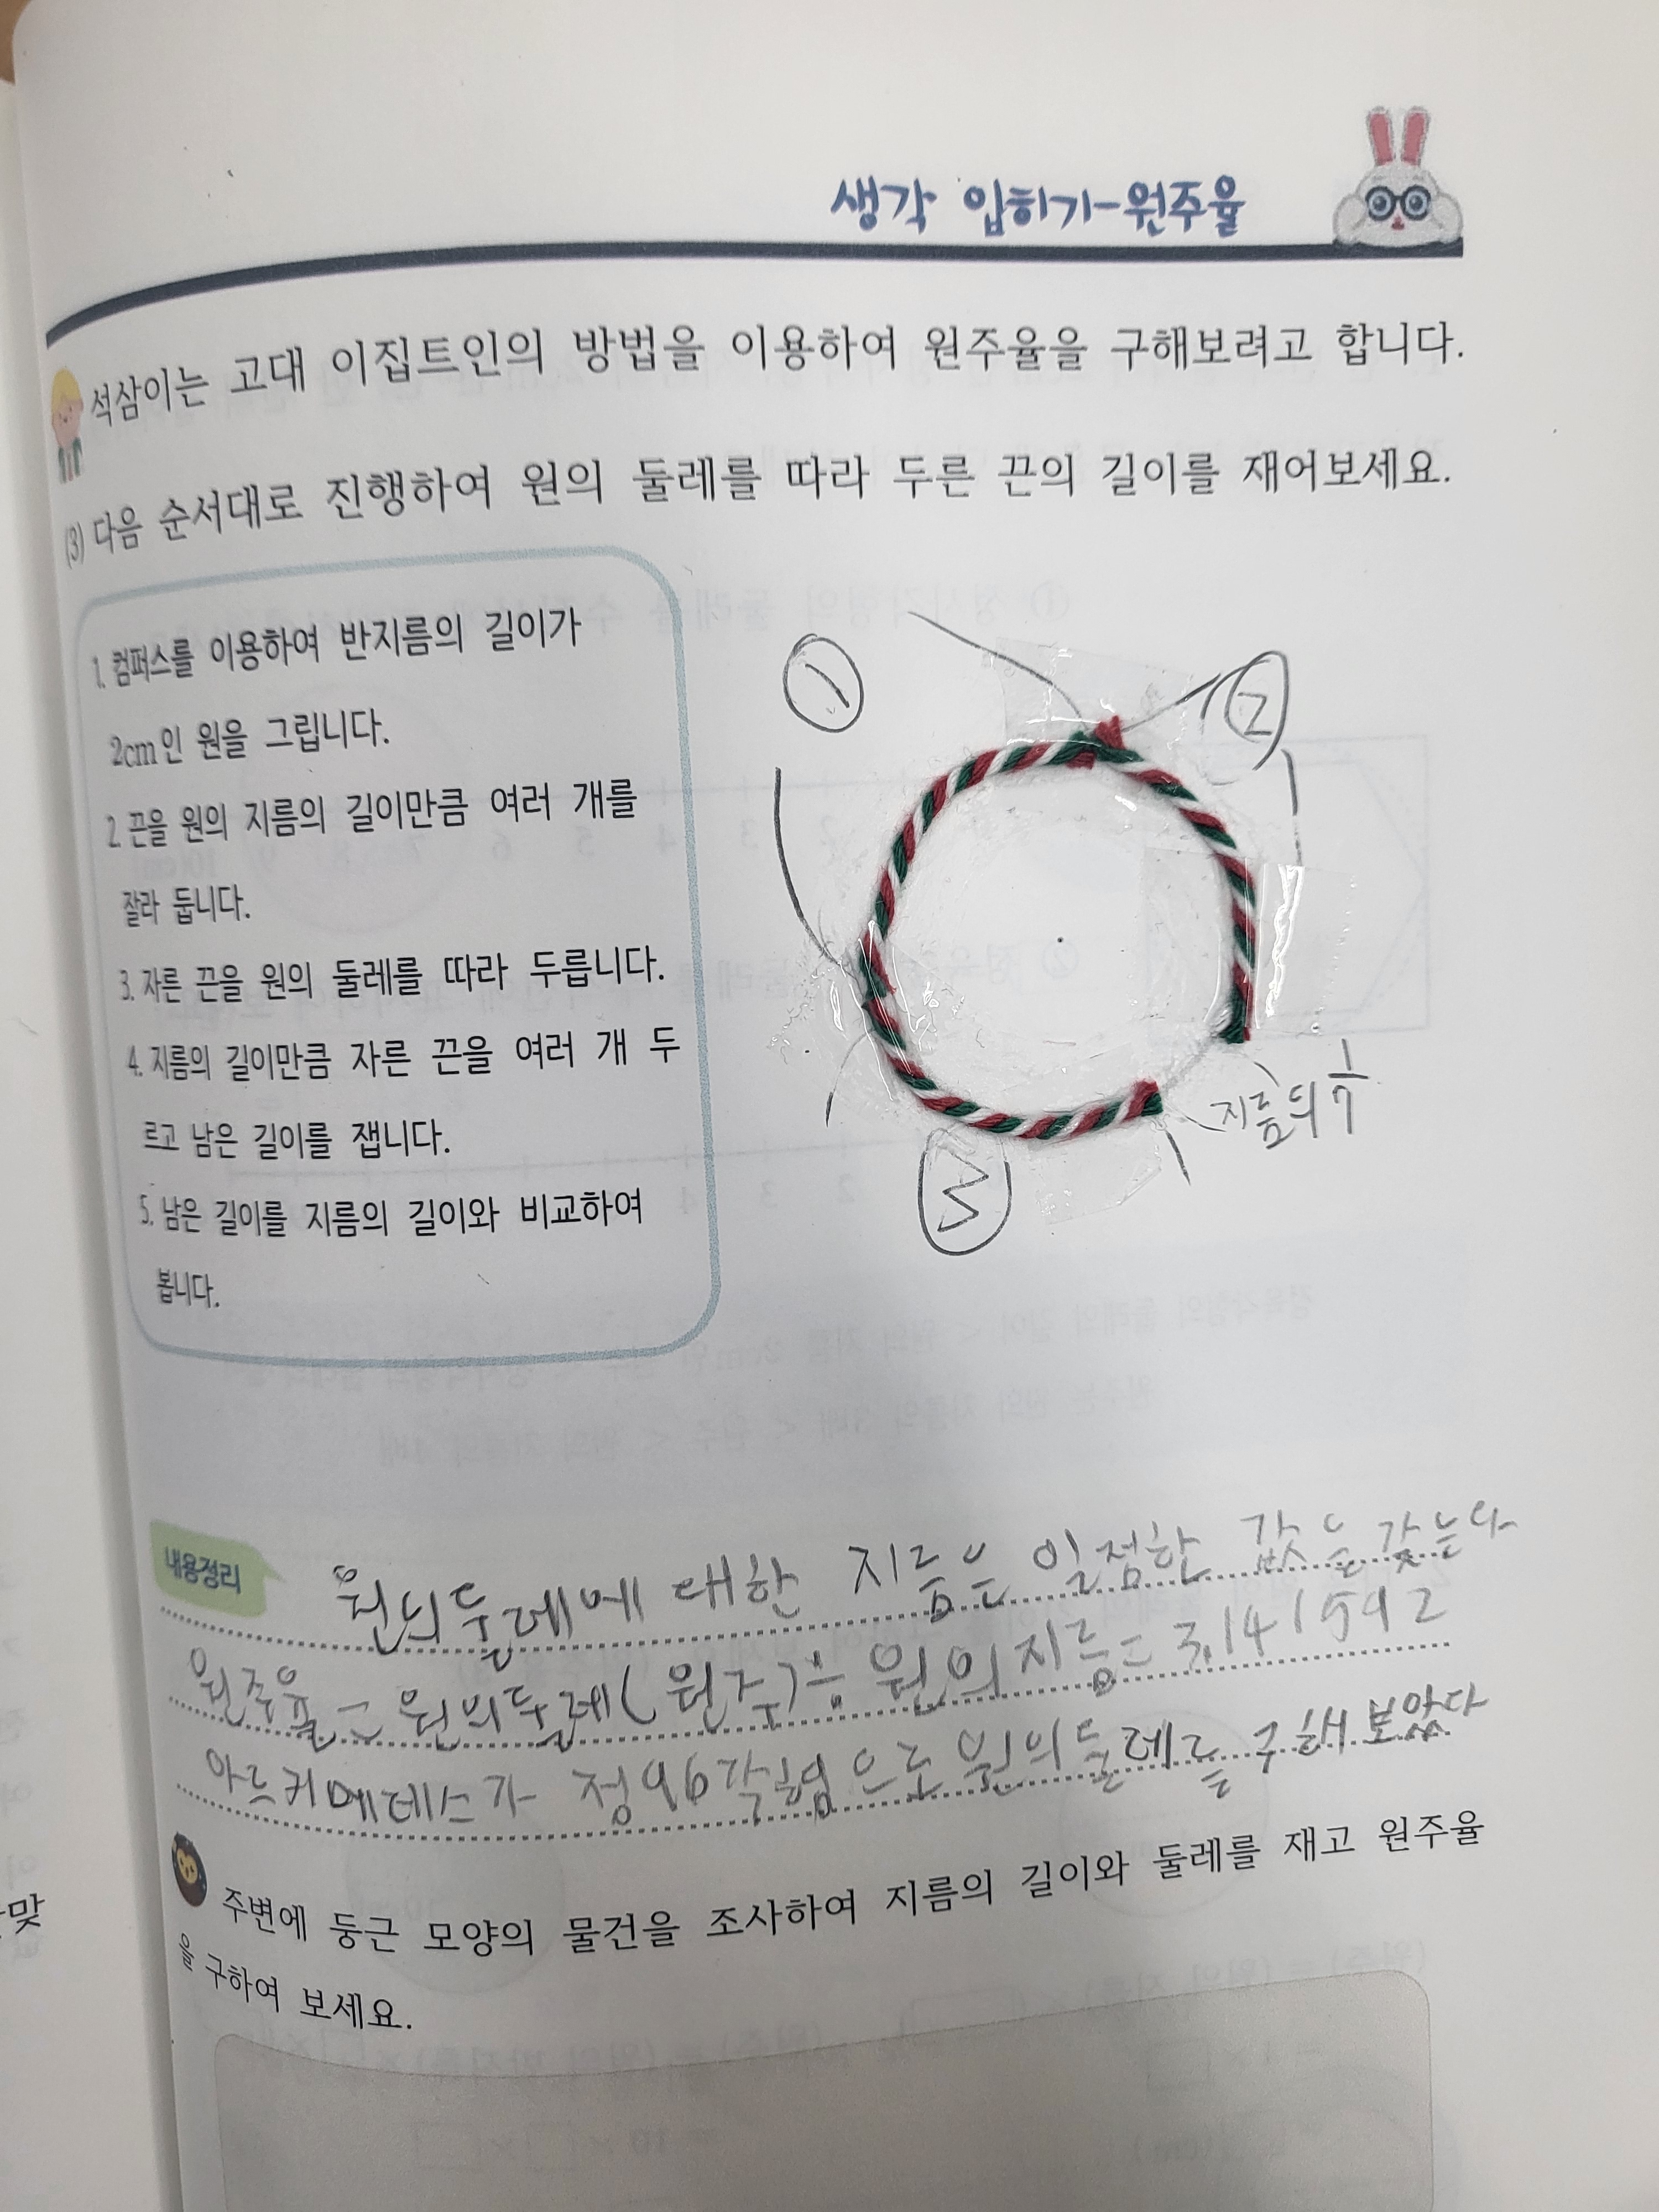 생각 입히기-원주율
석삼이는 고대 이집트인의 방법을 이용하여 원주율을 구해보려고 합니다.
(3) 다음 순서대로 진행하여 원의 둘레를 따라 두른 끈의 길이를 재어보세요.
1. 컴퍼스를 이용하여 반지름의 길이가
2cm인 원을 그립니다.
2. 끈을 원의 지름의 길이만큼 여러 개를
잘라 둡니다.
3. 자른 끈을 원의 둘레를 따라 두릅니다.
4. 지름의 길이만큼 자른 끈을 여러 개 두
르고 남은 길이를 잽니다.
5. 남은 길이를 지름의 길이와 비교하여
봅니다.
①
②
③
지름의 1/7
내용정리
원의 둘레에 대한 지름은 일정한 값을 갖는다
원주율 = 원의 둘레(원주)÷원의 지름=3.141592
아르키메데스가 정96각형으로 원의 둘레를 구해 보았다
주변에 둥근 모양의 물건을 조사하여 지름의 길이와 둘레를 재고 원주율
을 구하여 보세요.
맞